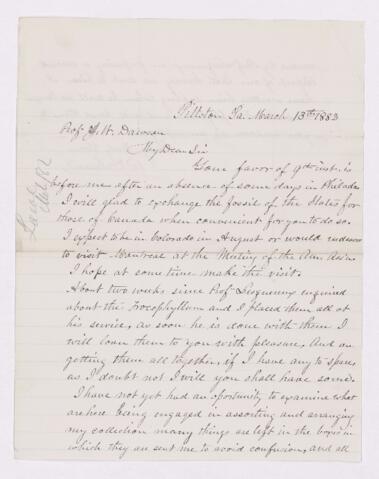 Pittston Pa. March 13th 1883
Prof. J. W. Dawson
My Dear Sir
Your favor of 9th inst. is
before me after an absence of some days in Philada
I will glad to exchange the fossil of the States for
those of Canada when convenient for you to do so.
I expect to be in Colorado in August or would endeavor
to visit Montreal at the Meeting of the Am. Assn
I hope at some time make the visit.
About two weeks since Prof. Lesquereux enquired
about the and I placed them all at
his service, as soon he is done with them I
will loan them to you with pleasure. And on
getting them all together, if I have any to spare,
as I doubt not I will you shall have some.
I have not yet had an oportunity to examine what
are here being engaged in assorting and arranging
my collection many things are left in the boxes in
which they are sent me to avoid confusion, and all